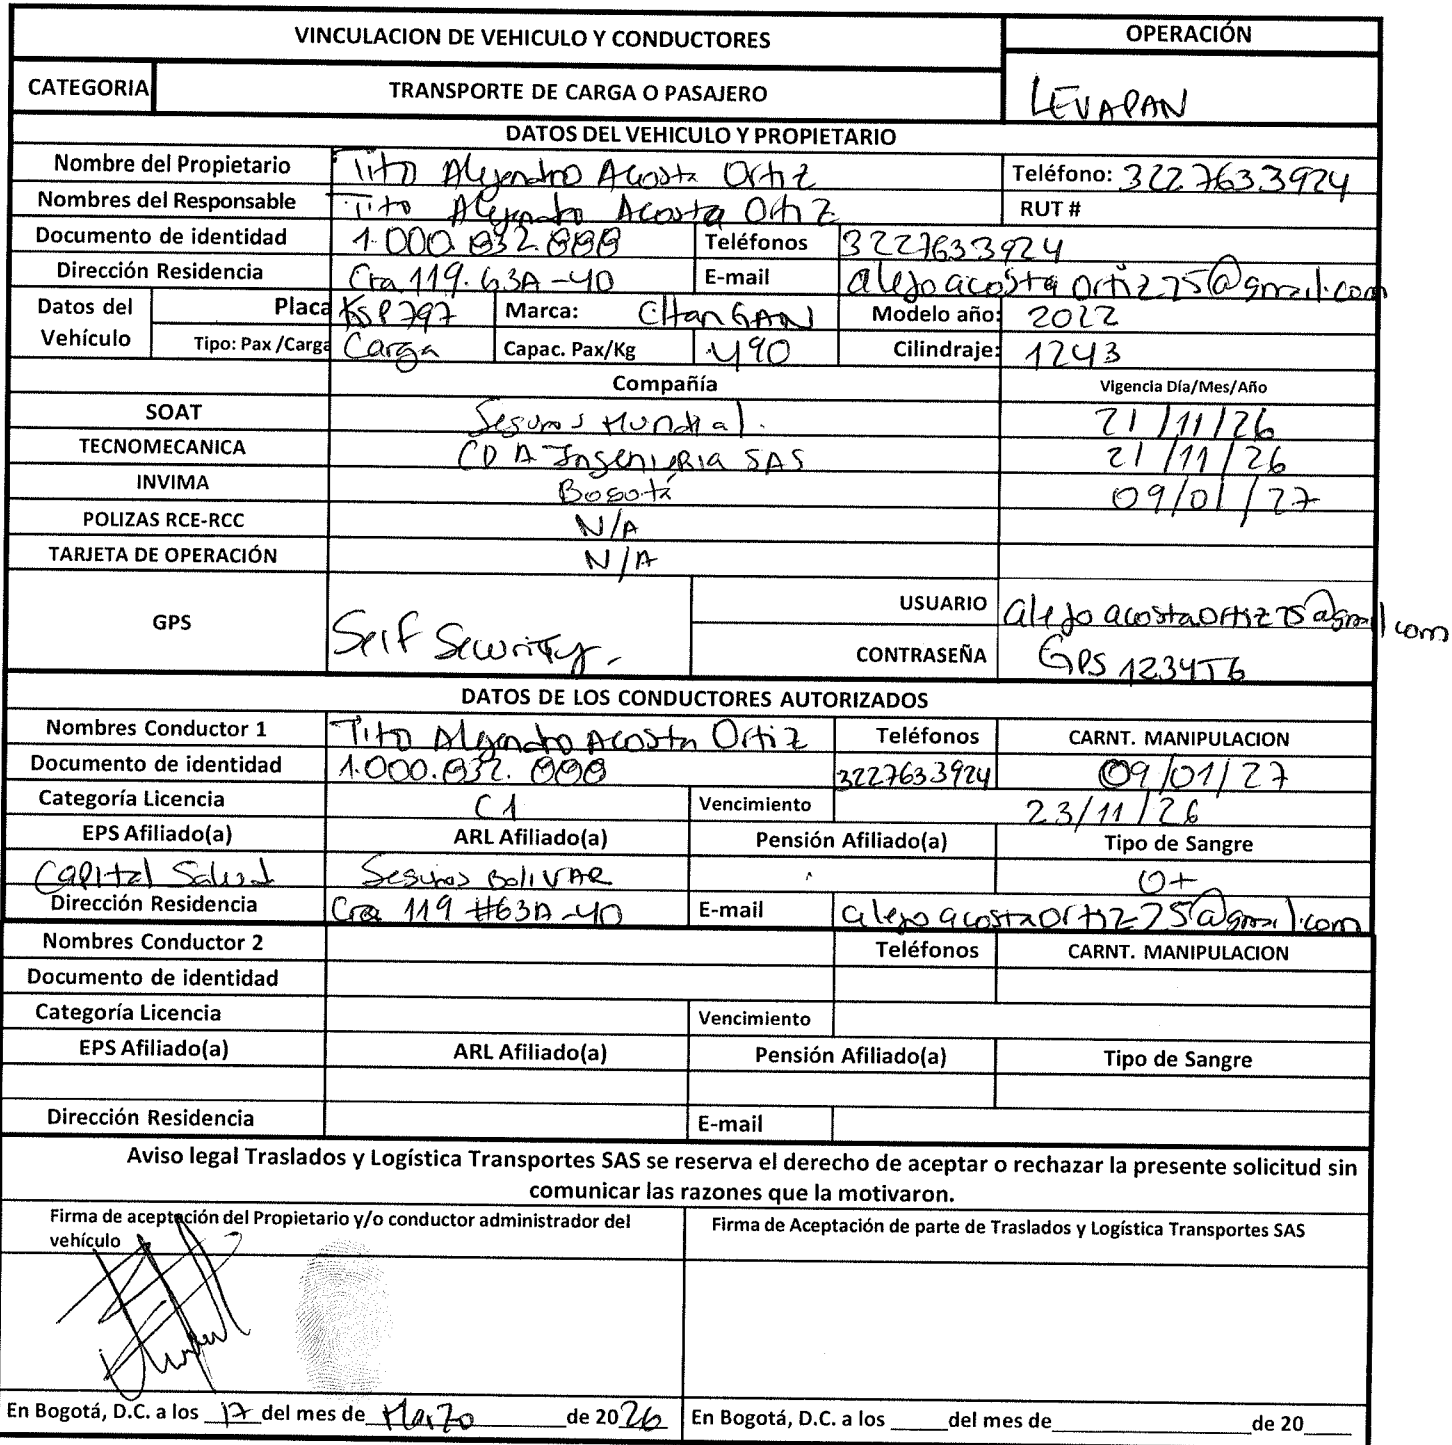 VINCULACION DE VEHICULO Y CONDUCTORES OPERACIÓN
CATEGORIA TRANSPORTE DE CARGA O PASAJERO LEVAPAN
DATOS DEL VEHICULO Y PROPIETARIO
Nombre del Propietario Tito Alejandro Acosta Ortiz Teléfono: 3227633924
Nombres del Responsable Tito Alejandro Acosta Ortiz RUT #
Documento de identidad 1.000.832.888 Teléfonos 3227633924
Dirección Residencia Cra 119. 63A-40 E-mail alejoacostaortiz75@gmail.com
Datos del Vehículo Placa KSP797 Marca: CHanGAN Modelo año: 2022
Tipo: Pax /Carga Carga Capac. Pax/Kg 490 Cilindraje: 1243
Compañía Vigencia Día/Mes/Año
SOAT Seguros Mundial. 21/11/26
TECNOMECANICA CDA Ingenieria SAS 21/11/26
INVIMA Bogotá 09/01/27
POLIZAS RCE-RCC N/A
TARJETA DE OPERACIÓN N/A
GPS Self Security. USUARIO alejoacostaortiz75@gmail.com
CONTRASEÑA GPS1234T6
DATOS DE LOS CONDUCTORES AUTORIZADOS
Nombres Conductor 1 Tito Alejandro Acosta Ortiz Teléfonos CARNT. MANIPULACION
Documento de identidad 1.000.832.888 3227633924 09/01/27
Categoría Licencia C1 Vencimiento 23/11/26
EPS Afiliado(a) ARL Afiliado(a) Pensión Afiliado(a) Tipo de Sangre
Capital Salud Seguros BOLIVAR O+
Dirección Residencia Cra 119 #63A-40 E-mail alejoacostaortiz75@gmail.com
Nombres Conductor 2 Teléfonos CARNT. MANIPULACION
Documento de identidad
Categoría Licencia Vencimiento
EPS Afiliado(a) ARL Afiliado(a) Pensión Afiliado(a) Tipo de Sangre
Dirección Residencia E-mail
Aviso legal Traslados y Logística Transportes SAS se reserva el derecho de aceptar o rechazar la presente solicitud sin
comunicar las razones que la motivaron.
Firma de aceptación del Propietario y/o conductor administrador del
vehículo
Firma de Aceptación de parte de Traslados y Logística Transportes SAS
En Bogotá, D.C. a los 17 del mes de Marzo de 2026 En Bogotá, D.C. a los _____del mes de_____________________de 20____